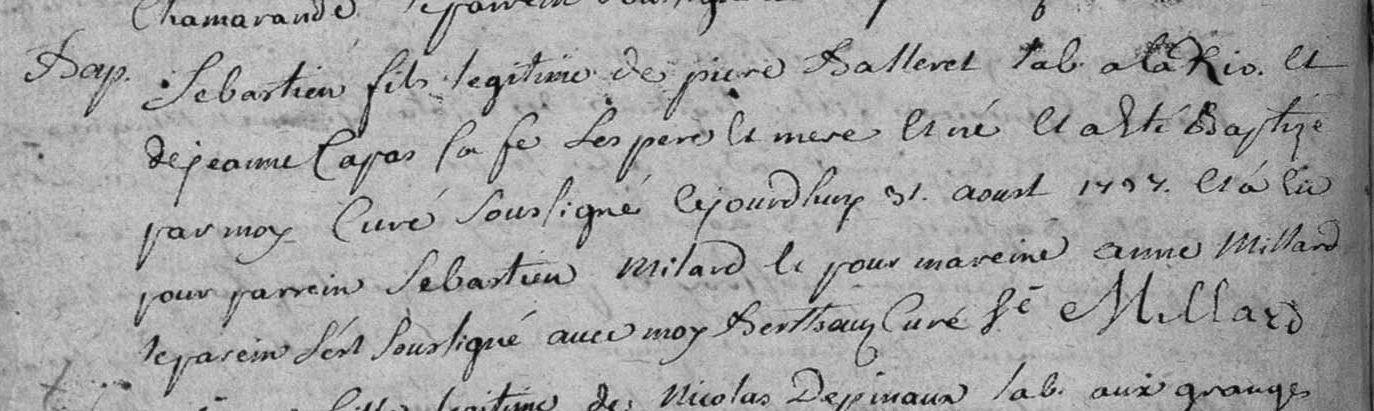 Chamarande le parrein soussigné
Bap. Sebastien fils legitime de piere Balleret lab. a la Rio. et
de jeanne Capas sa fe ses pere et mere est né et a esté Baptizé
par moy Curé sousigné cejourdhuy 31. aoust 1757. et à eu
pour parrein Sebastien Milard et pour mareine anne Millard
le parein s'est sousigné avec moy Berthaux Curé Sé Millard
fille legitime de Nicolas Depinaux lab. aux granges